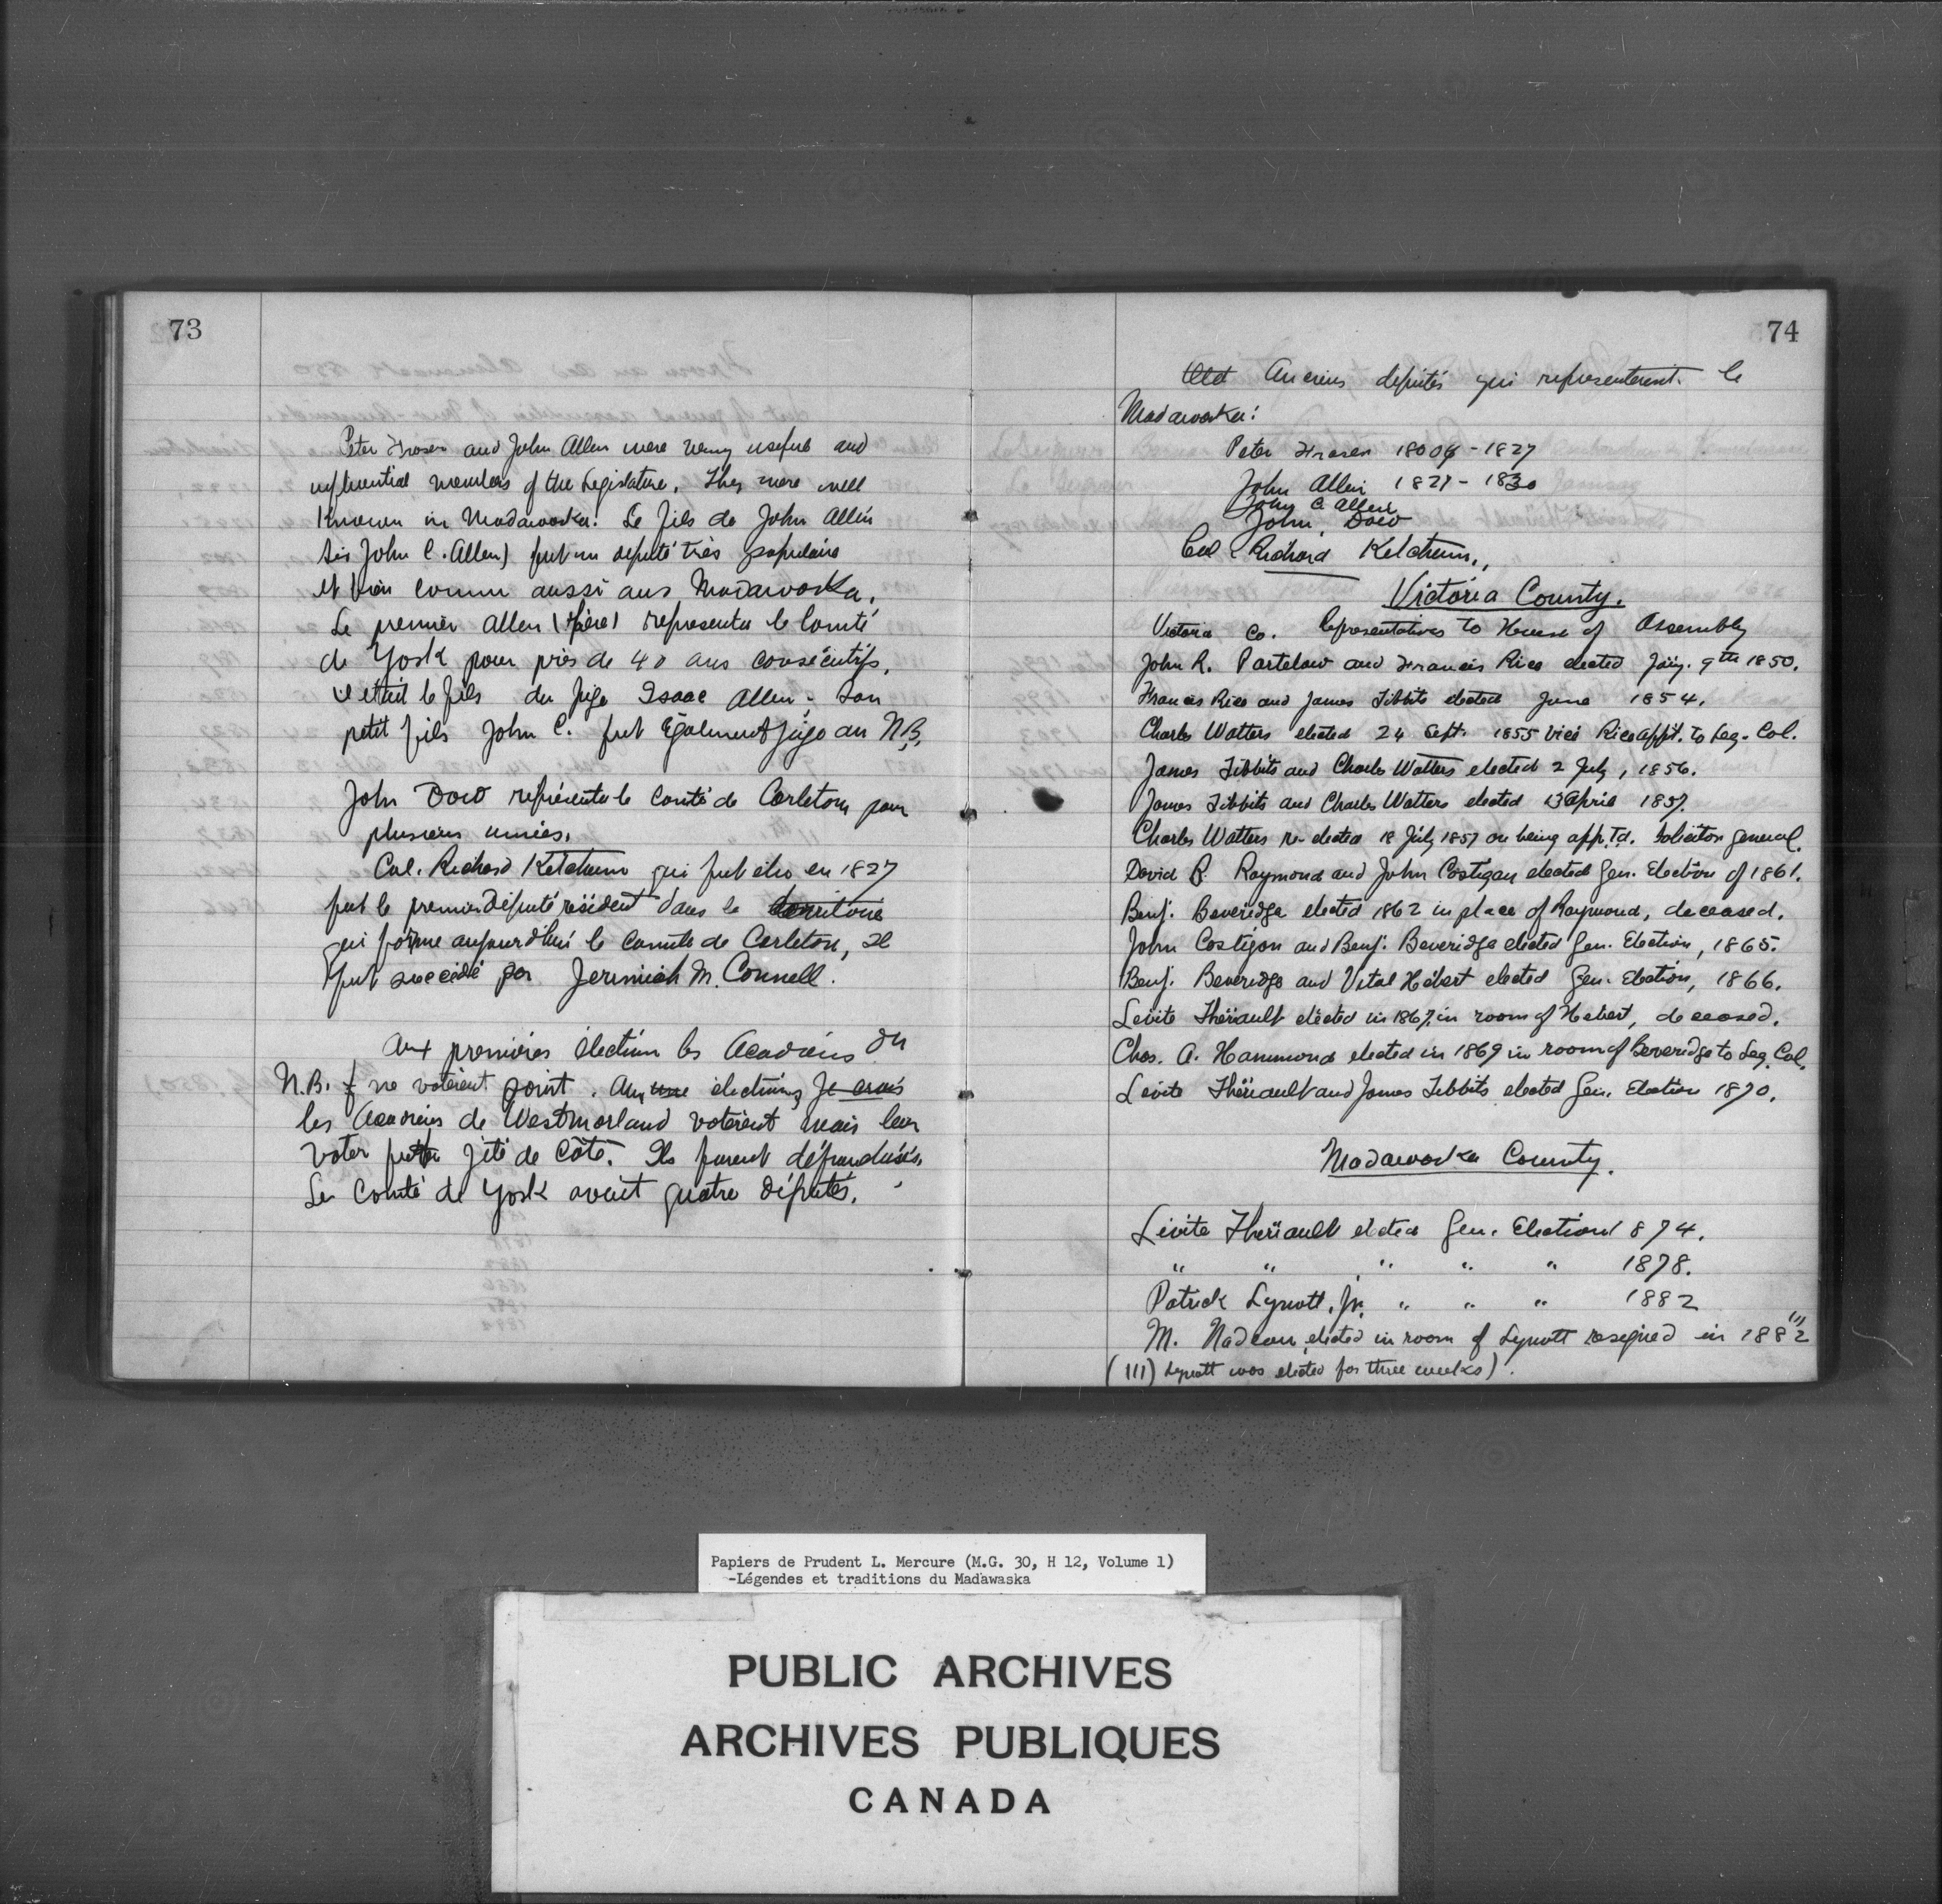 73
Peter Fraser and John Allen were very useful and
influential members of the Legislature. They were well
Known in Madawaska. Le fils de John Allen
Sir John C. Allen) fut un deputé très populaire
et bien connu aussi aus Madawaska.
Le premier Allen (Père) representa le Comté
de York pour près de 40 ans consécutifs.
il était le fils du juge Isaac Allen; son
petit fils John C. fut Également juge au N.B.
John Dow représenta le Comté de Carleton pour
plusieurs années.
Col. Richard Ketchum qui fut élu en 1827
fut le premier député résident dans le territoire
qui forme aujourd'hui le Comté de Carleton, Il
fut succédé par Jeremiah M. Connell.
Aux premières élection les Acadiens du
N.B. ne votèrent point. Aux une elections Je crois
les Acadiens de Westmorland votèrent mais leur
voter jeté de Côté. Ils furent défranchisés.
Le Comté de York avait quatre députés.
74
Old Anciens deputés qui representerent le
Madawaska:
Peter Fraser 1809 - 1827
John Allen 1827 - 1830
John C. Allen
John Dow
Col Richard Ketchum.,
Victoria County.
Victoria Co. Representatives to House of Assembly
John R. Partelow and Francis Rice elected Jany. 9th 1850.
Francis Rice and James Tibbits elected June 1854.
Charles Watters elected 24 Sept. 1855 vice Rice appt. to Leg. Col.
James Tibbits and Charles Watters elected 2 July, 1856.
James Tibbits and Charles Watters elected 13 April 1857.
Charles Watters re-elected 18 July 1857 on being app.Td. Solicitor General.
David B. Raymond and John Costigan elected Gen. Election of 1861.
Benj. Beveridge elected 1862 in place of Raymond, deceased.
John Costigan and Benj. Beveridge elected Gen. Election, 1865.
Benj. Beveridge and Vital Hébert elected Gen. Election, 1866.
Lévite Thériault elected in 1867, in room of Hebert, deceased.
Chas. A. Hammond elected in 1869 in room of Beveridge to Leg. Col.
Levite Thériault and James Tibbits elected Gen. Election 1870.
Madawaska County.
Lévite Thériault elected Gen. Election 1874.
" " " " " 1878.
Patrick Lynott, Jr. " " " 1882
M. Nadeau elected in room of Lynott resigned in 1882 111
(111) Lynott was elected for three weeks).
Papiers de Prudent L. Mercure (M.G. 30, H 12, Volume 1)
-Légendes et traditions du Madawaska
PUBLIC ARCHIVES
ARCHIVES PUBLIQUES
CANADA